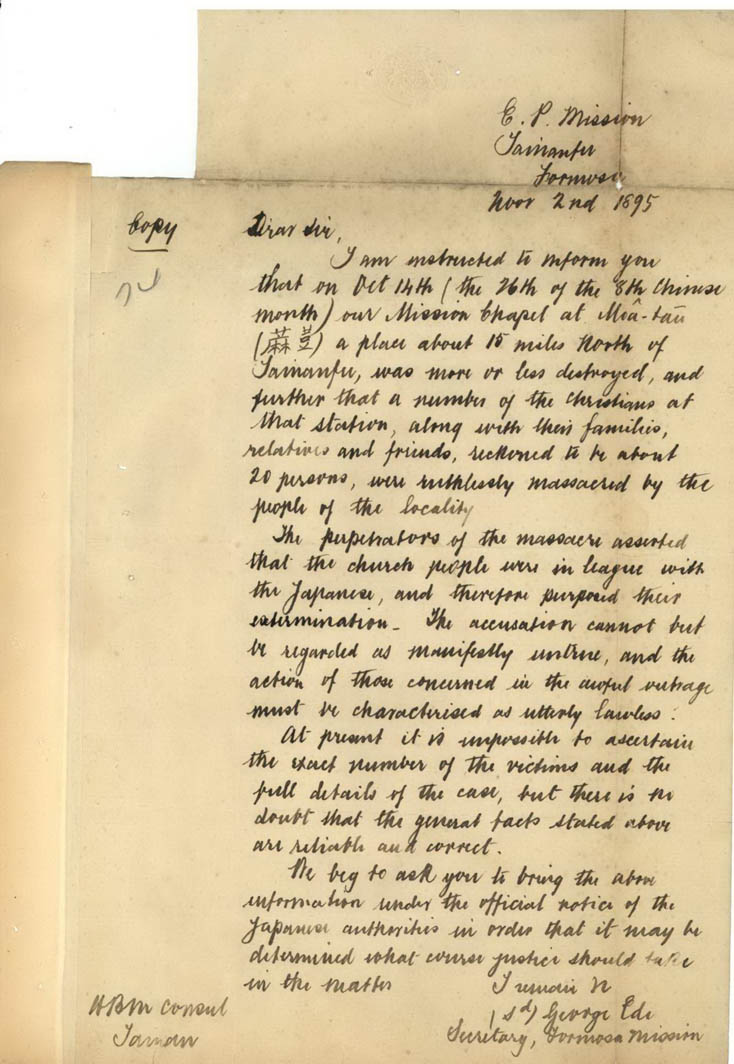 E. P. Mission
Tainanfu
Formosa
Novr 2nd 1895
Copy
Dear Sir,
I am instructed to inform you
that on Oct 14th (the 26th of the 8th Chinese
month) our Mission Chapel at Moâ-tāu
(蔴荳) a place about 15 miles North of
Tainanfu, was more or less destroyed, and
further that a number of the Christians at
that station, along with their families,
relatives and friends, reckoned to be about
20 persons, were ruthlessly massacred by the
people of the locality
The perpetrators of the massacre asserted
that the church people were in league with
the Japanese, and therefore purposed their
extermination. The accusation cannot but
be regarded as manifestly untrue, and the
action of those concerned in the awful outrage
must be characterised as utterly lawless.
At present it is impossible to ascertain
the exact number of the victims and the
full details of the case, but there is no
doubt that the general facts stated above
are reliable and correct.
We beg to ask you to bring the above
information under the official notice of the
Japanese authorities in order that it may be
determined what course justice should take
in the matter
I remain
(sd) George Ede
Secretary, Formosa Mission
HBM Consul
Tainan